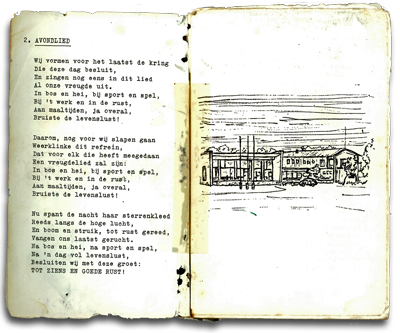 2. AVONDLIED
Wij vormen voor het laatst de kring
Die deze dag besluit,
En zingen nog eens in dit lied
Al onze vreugde uit.
In bos en hei, bij sport en spel,
Bij 't werk en in de rust,
Aan maaltijden, ja overal,
Bruiste de levenslust!
Daarom, nog voor wij slapen gaan
Weerklinke dit refrein,
Dat voor elk die heeft meegedaan
Een vreugdelied zal zijn:
In bos en hei, bij sport en spel,
Bij 't werk en in de rust,
Aan maaltijden, ja overal,
Bruiste de levenslust!
Nu spant de nacht haar sterrenkleed
Reeds langs de hoge lucht,
En boom en struik, tot rust gereed,
Vangen ons laatst gerucht.
Na bos en hei, na sport en spel,
Na 'n dag vol levenslust,
Besluiten wij met deze groet:
TOT ZIENS EN GOEDE RUST!